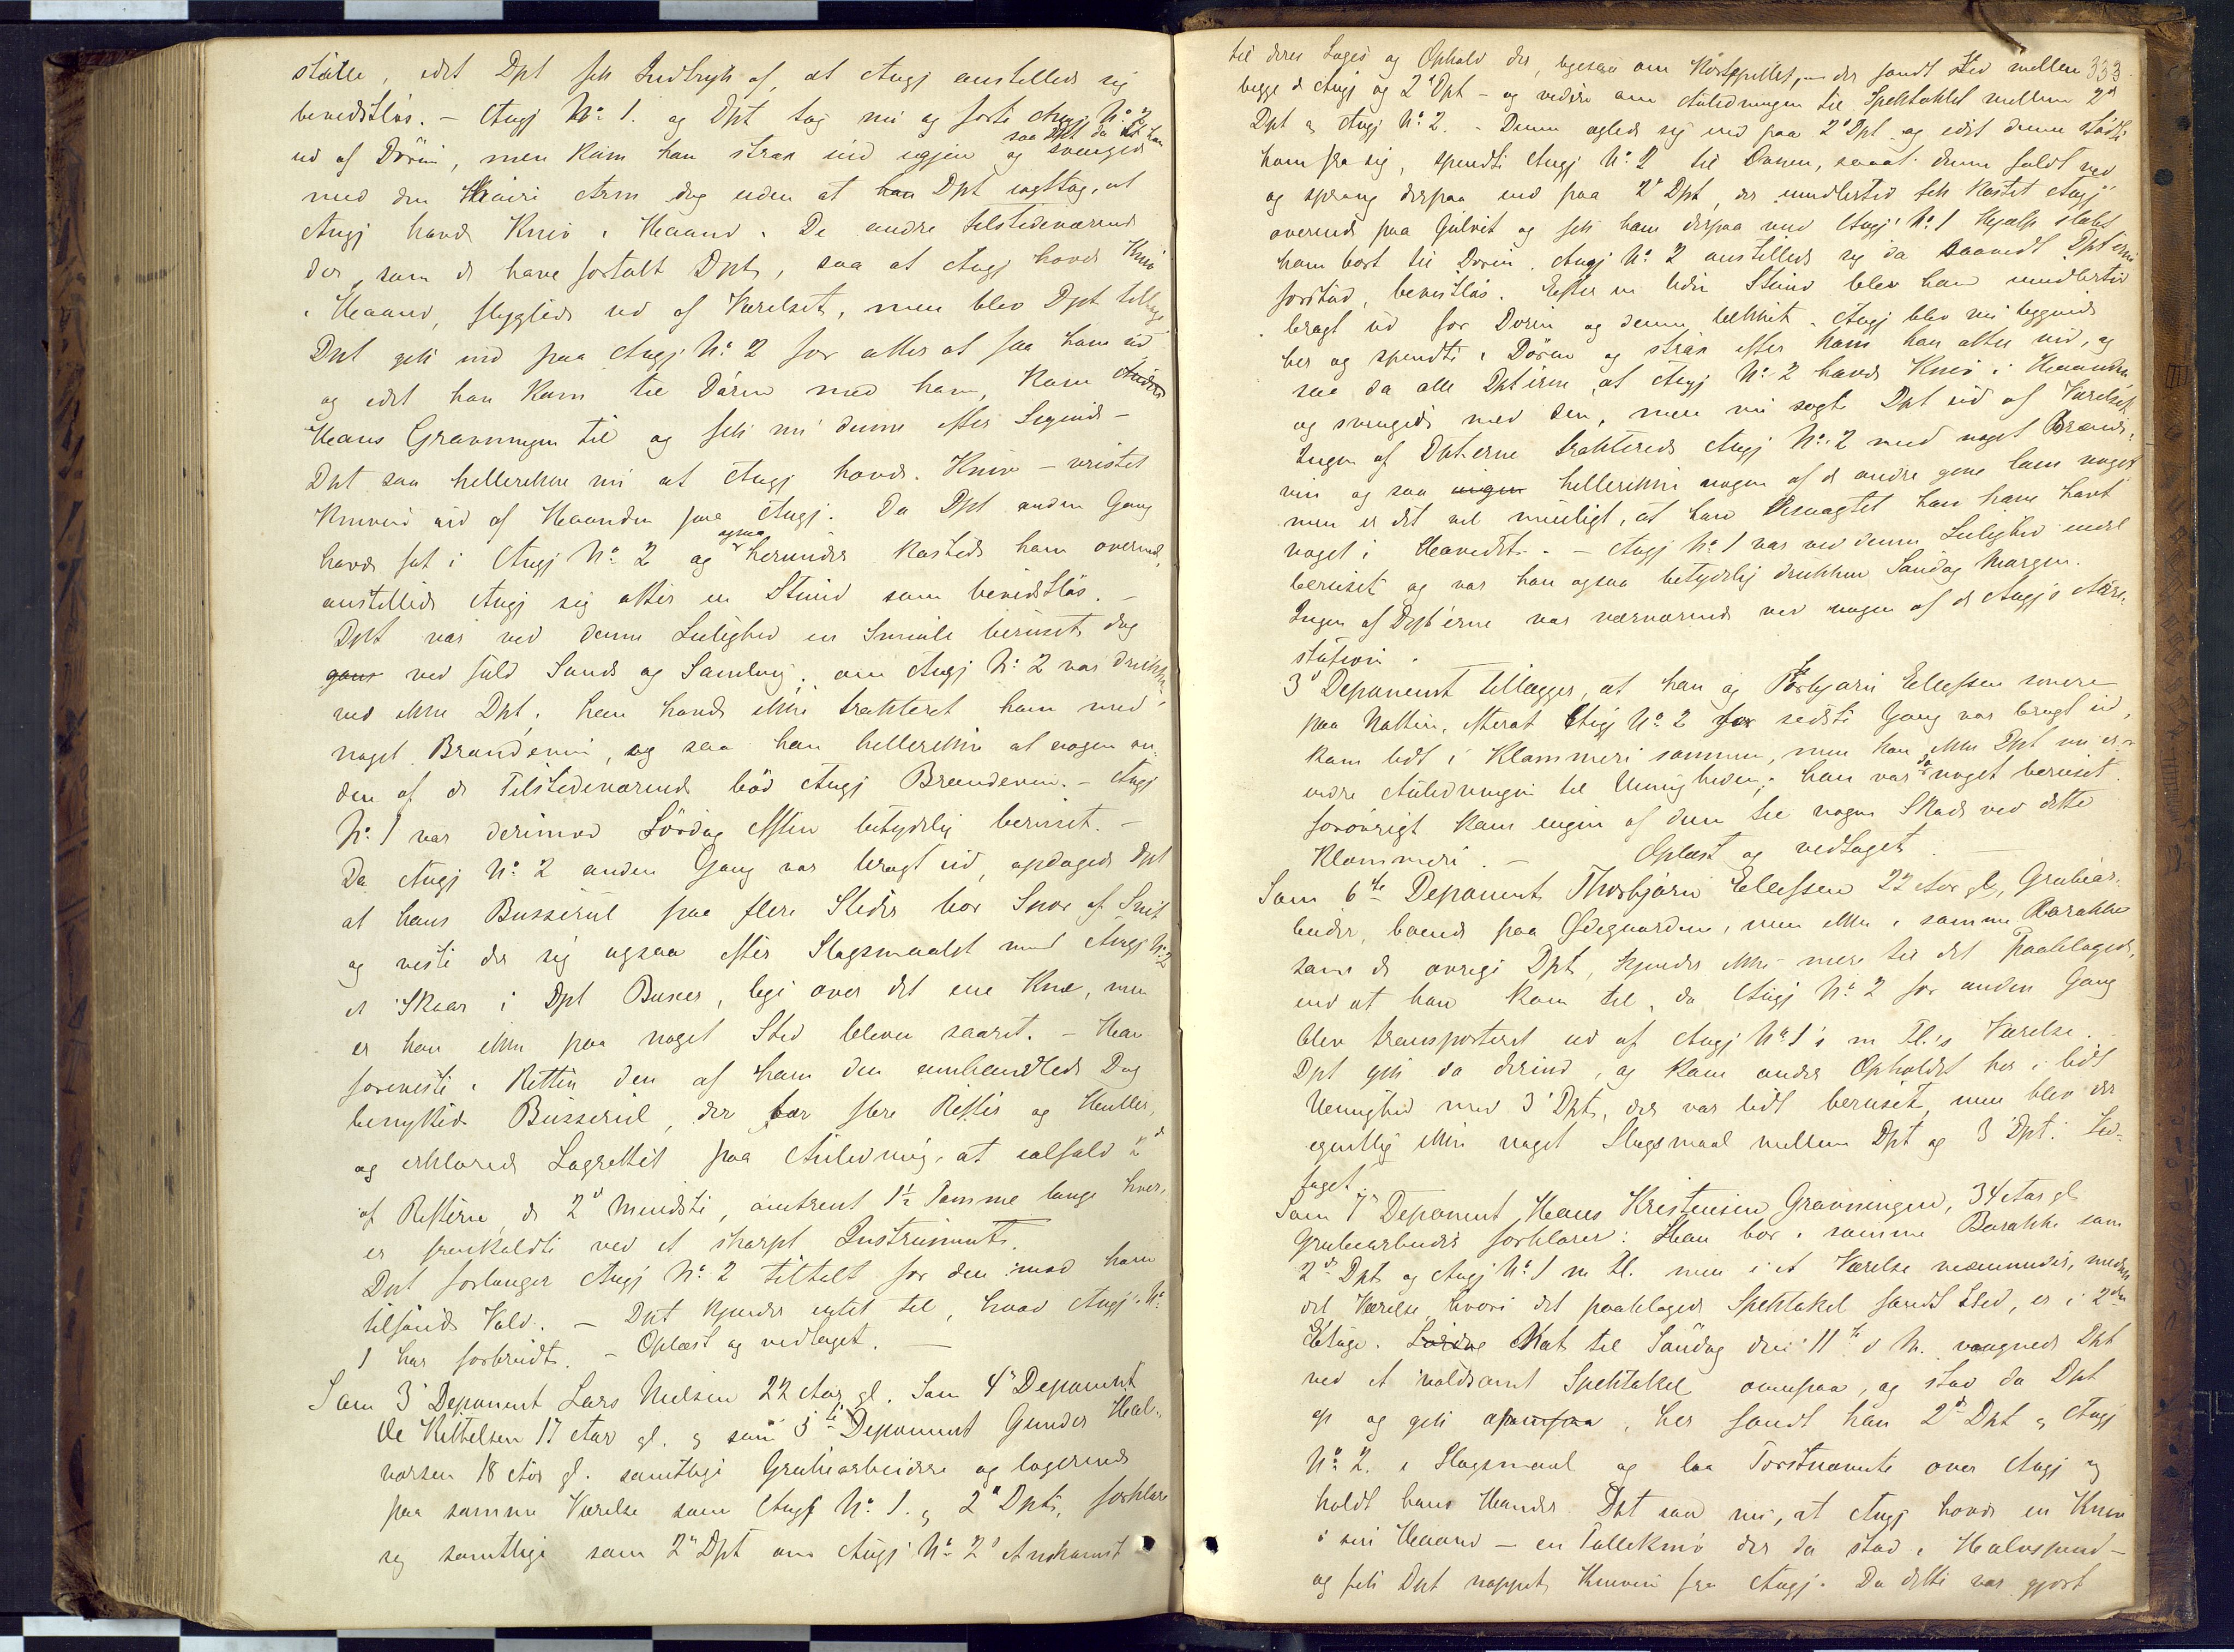 stille, idet Dpt fik Indtryk af, at Angj anstillede sig
bevidstløs. - Angj No: 1. og Dpt tog nu og førte Angj. No 2
ud af Døren, men kom han strax ind igjen og svingede
saa Dpt da at han
med den høire Arm dog uden at han Dpt iagttog, at
Angj havde Kniv i Haand. De andre tilstedeværende
der, som de have fortalt Dpt, saa at Angj havde Kniv
i Haand, flygtede ud af Værelset, men blev Dpt tilbage
Dpt gik ind paa Angj. No 2 for atter at faa ham ud
og idet han kom til Døren med ham, kom
Hans Gravningen til og fik nu denne efter Sigende -
Dpt saa hellerikke nu at Angj havde Kniv - vristet
Kniven ud af Haanden paa Angj. Da Dpt anden Gang
havde fat i Angj No 2 og herunder kastede ham overende,
ogsaa
anstillede Angj sig atter en Stund som bevidstløs. -
Dpt var ved denne Leilighed en Smule beruset dog
ganz ved fuld Sands og Samling; om Angj No 2 var drukken
ved ikke Dpt. han havde ikke trakteret ham med
noget Brændevin, og saa han hellerikke at nogen an-
den af de Tilstedeværende bød Angj Brændevin. - Angj
No. 1 var derimod Lørdag Aften betydelig beruset. -
Da Angj No 2 anden Gang var bragt ud, opdagede Dpt
at hans Busserul paa flere Steder bar Spor af Snit
og viste der sig ogsaa efter Slagsmaalet med Angj No 2
et Skaar i Dpt Buxer, lige over det ene Knæ, men
er han ikke paa noget Sted bleven saaret. - Han
foreviste i Retten den af ham den omhandlede Dag
benyttede Busserul, der bar flere Rifter og Huller,
og erklærede Lagrettet paa Anledning, at ialfald 2de
af Rifterne, de 2de mindste, omtrent 1½ Tomme lange hver,
er fremkaldte ved et skarpt Instrument.
Dpt forlanger Angj No 2 tiltalt for den imod ham
tilføiede Vold. - Dpt kjender intet til, hvad Angj. No
1 har forbrudt. - Oplæst og vedtaget.
Som 3' Deponent Lars Nielsen 22 Aar gl. Som 4' Deponent
Ole Kittelsen 17 Aar gl. og som 5te Deponent Gunder Hal-
vorsen 18 Aar gl. samtlige Grubearbeidere og logerende
paa samme Værelse som Angj No 1. og 2' Dpt, forklare
sig samtlige som 2' Dpt om Angj No 2's Ankomst
333
til deres Logis og Ophold der, ligesaa om Kortspillet, der fandt Sted mellem
begge de Angj og 2' Dpt - og videre om Anledningen til Spektaklet mellem 2'
Dpt og Angj No. 2. - Denne æglede sig ind paa 2' Dpt og idet denne stødte
ham fra sig, spændte Angj No. 2 til Ovnen, saaat denne faldt ned
og sprang derpaa ind paa 2' Dpt, der imidlertid fik kastet Angj
overende paa Gulvet og fik ham derpaa med Angj. No. 1 Hjælp slæbt
ham bort til Døren. Angj No. 2 anstillede sig da saavidt Dpterne
forstod, bevistløs. Efter en liden Stund blev han imidlertid
bragt ud for Døren og denne lukket. Angj blev nu liggende
her og spændte i Døren og strax efter kom han atter ind, og
saa da alle Dpterne, at Angj No. 2 havde Kniv i Haanden
og svingede med den, men nu søgte Dpt ud af Værelset.
Ingen af Dpterne trakterede Angj No. 2 med noget Brænde-
vin og saa ingen hellerikke nogen af de andre give ham noget
men er det vel muligt, at han desuagtet kan have havt
noget i Hovedet. - Angj No 1 var ved denne Leilighed endel
beruset og var han ogsaa betydelig drukken Søndag Morgen.
Ingen af Dpterne var nærværende ved nogen af de Angj's Arre-
station.
3' Deponent tillægger, at han og Thorbjørn Ellefsen senere
paa Natten, efterat Angj No. 2 for sidste Gang var bragt ud,
kom lidt i Klammeri sammen, men kan ikke Dpt nu er-
indre Anledningen til Uenigheden; han var noget beruset.
da
forøvrigt kom ingen af dem til nogen Skade ved dette
Klammeri. - Oplæst og vedtaget.
Som 6te Deponent Thorbjørn Ellefsen 22 Aar gl, Grubear-
beider, boende paa Ødegaarden, men ikke i samme Barakke
som de øvrige Dpt, kjender ikke mere til det Paaklagede,
end at han kom til, da Angj No 2 for anden Gang
blev transporteret ud af Angj No 1's m Fl.'s Værelse.
Dpt gik da derind, og kom under Opholdet her i lidt
Uenighed med 3' Dpt, der var lidt beruset, men blev der
egentlig ikke noget Slagsmaal mellem Dpt og 3' Dpt. Ved-
taget.
Som 7' Deponent Hans Kristensen Gravningen, 34 Aar gl
Grubearbeider forklarer: Han bor i samme Barakke som
2' Dpt og Angj No. 1 m Fl. men i et Værelse nedenunder, medens
det Værelse hvori det paaklagede Spektakel fandt Sted, er i 2den
Etage. Lørdag Nat til Søndag den 11te d M. vaagnede Dpt
ved et voldsomt Spektakel ovenpaa, og stod da Dpt
op og gik ovenpaa, her fandt han 2' Dpt og Angj
No. 2. i Slagsmaal og laa Førstnævnte over Angj og
holdt hans Hænder. Dpt saa nu, at Angj havde en Kniv
i sin Haand - en Tollekniv der da stod i Halvspænd -
og fik Dpt nappet Kniven fra Angj. Da dette var gjort